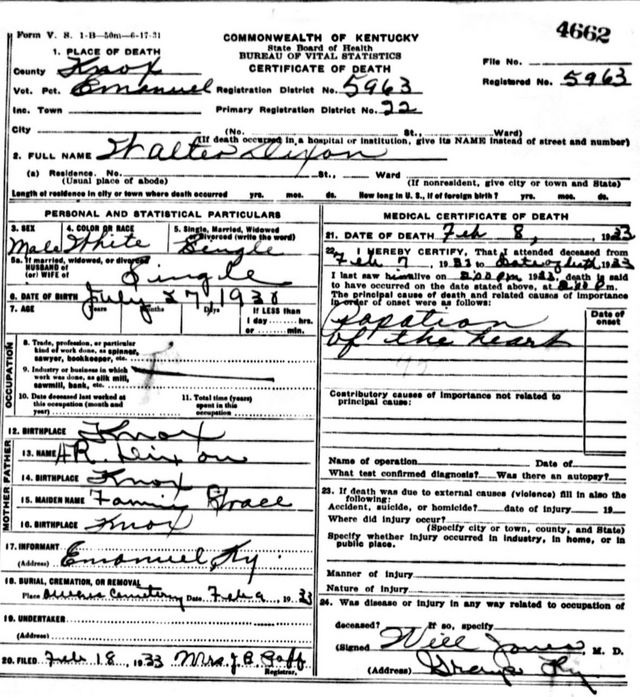 Form V. S. 1-B—50m—6-17-31
4662
COMMONWEALTH OF KENTUCKY
State Board of Health
BUREAU OF VITAL STATISTICS
CERTIFICATE OF DEATH
1. PLACE OF DEATH
County Knox
File No.
Vot. Pct. Emanuel Registration District No. 5963 Registered No. 5963
Inc. Town Primary Registration District No. 22
City (No. St., Ward)
(If death occurred in a hospital or institution, give its NAME instead of street and number)
2. FULL NAME Walter Dixon
(a) Residence. No. St., Ward
(Usual place of abode) (If nonresident, give city or town and State)
Length of residence in city or town where death occurred yrs. mos. ds. How long in U. S., if of foreign birth? yrs. mos. ds.
PERSONAL AND STATISTICAL PARTICULARS
3. SEX 4. COLOR OR RACE 5. Single, Married, Widowed
or Divorced (write the word)
Male White Single
5a. If married, widowed, or divorced
HUSBAND of
(or) WIFE of Single
6. DATE OF BIRTH July 27, 193
7. AGE Years Months Days If LESS than
1 day hrs.
or min.
OCCUPATION
8. Trade, profession, or particular
kind of work done, as spinner,
sawyer, bookkeeper, etc.
9. Industry or business in which
work was done, as silk mill,
sawmill, bank, etc.
10. Date deceased last worked at
this occupation (month and
year)
11. Total time (years)
spent in this
occupation
12. BIRTHPLACE Knox
FATHER
13. NAME HR. Dixon
14. BIRTHPLACE Knox
MOTHER
15. MAIDEN NAME Grace
16. BIRTHPLACE Knox
17. INFORMANT
(Address) Emanuel Ky
18. BURIAL, CREMATION, OR REMOVAL
Place Cemetery Date Feb 9, 1933
19. UNDERTAKER
(Address)
20. FILED Feb 18, 1933 Mrs. J. B.
Registrar.
MEDICAL CERTIFICATE OF DEATH
21. DATE OF DEATH Feb 8, 1933
22. I HEREBY CERTIFY, That I attended deceased from
Feb 7, 1933 to date of death 1933
I last saw him alive on 2:00 PM 1933, death is said
to have occurred on the date stated above, at P.m.
The principal cause of death and related causes of importance
in order of onset were as follows:
Date of
onset
of the heart
Contributory causes of importance not related to
principal cause:
Name of operation Date of
What test confirmed diagnosis? Was there an autopsy?
23. If death was due to external causes (violence) fill in also the
following:
Accident, suicide, or homicide? date of injury 19
Where did injury occur?
(Specify city or town, county, and State)
Specify whether injury occurred in industry, in home, or in
public place.
Manner of injury
Nature of injury
24. Was disease or injury in any way related to occupation of
deceased? If so, specify
(Signed Will Jones M. D.
(Address) Ky.